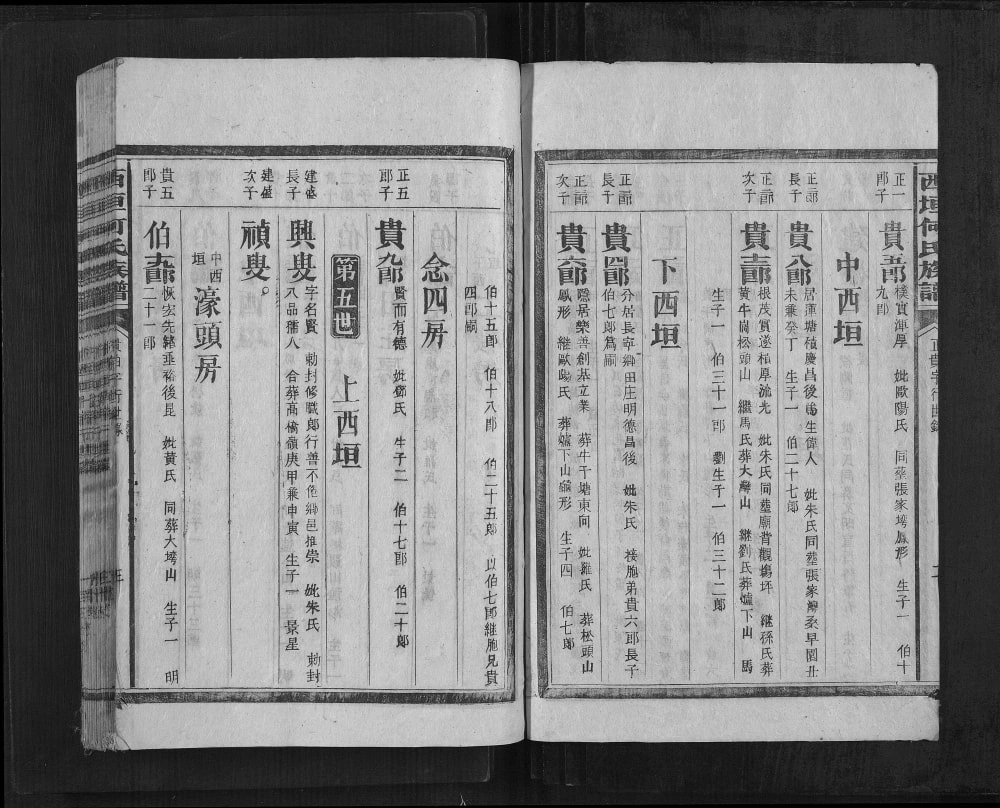 西垣何氏族譜
正一郎子
貴五郎
樸實渾厚 妣歐陽氏 同葬張家塝鳳形 生子一 伯十
九郎
中西垣
正二郎長子
貴八郎
居蓮塘積慶昌後馬生偉人 妣朱氏同葬張家灣桑早園丑
未兼癸丁 生子一 伯二十七郎
正二郎次子
貴十三郎
根茂實遂植厚流光 妣朱氏同塟廟背觀塲坪 繼孫氏葬
黃牛崗松頭山 繼馬氏葬大灣山 繼劉氏葬爐下山 馬
生子一 伯三十一郎 劉生子一 伯三十二郎
下西垣
正三郎長子
貴四郎
分居長寧鄉田庄明德昌後 妣朱氏 接胞弟貴六郎長子
伯七郎爲嗣
正三郎次子
貴六郎
隱居樂善創基立業 葬牛干塘東向 妣羅氏 葬松頭山
鳳形 繼歐陽氏 葬爐下山龜形 生子四 伯七郎
伯十五郎 伯十八郎 伯二十五郎 以伯七郎継胞兄貴
四郎嗣
念四房
正五郎子
貴九郎
賢而有德 妣鄧氏 生子二 伯十七郎 伯二十郎
第五世 上西垣
建盛長子
興叟
字名賢 勅封修職郎行善不倦鄉邑推崇 妣朱氏 勅封
八品孺人 合葬高橋嶺庚甲兼申寅 生子一 景星
建盛次子
禎叟
中西垣 濠頭房
貴五郎子
恢宏先緒垂裕後昆 妣黃氏 同葬大塝山 生子一 明
二十一郎
西垣何氏族譜